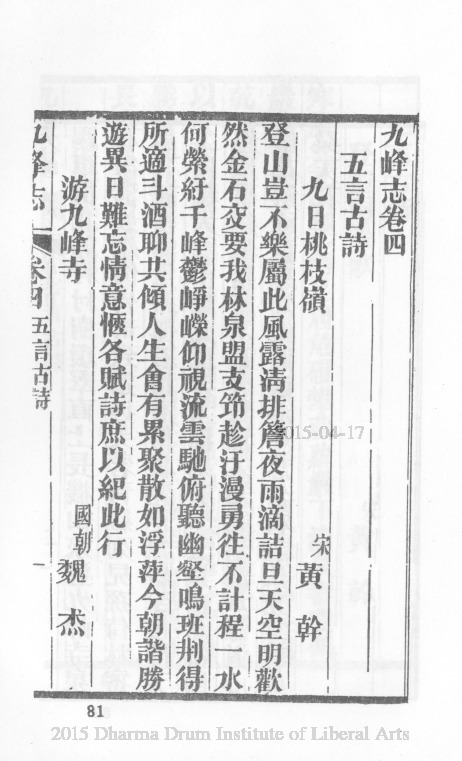 九峰志卷四
五言古詩
九日桃枝嶺
宋
黃榦
登山豈不樂屬此風露淸排簷夜雨滴詰旦天空明歡
然金石交要我林泉盟支筇趁汗漫勇徃不計程一水
何縈紆千峰鬱崢嶸仰視流雲馳俯聽幽壑鳴班荆得
所適斗酒聊共傾人生會有累聚散如浮萍今朝諧勝
遊異日難忘情意愜各賦詩庶以紀此行
游九峰寺
國朝
魏杰
九峰志
卷四
五言古詩
一
81
2015-04-17
2015 Dharma Drum Institute of Liberal Arts